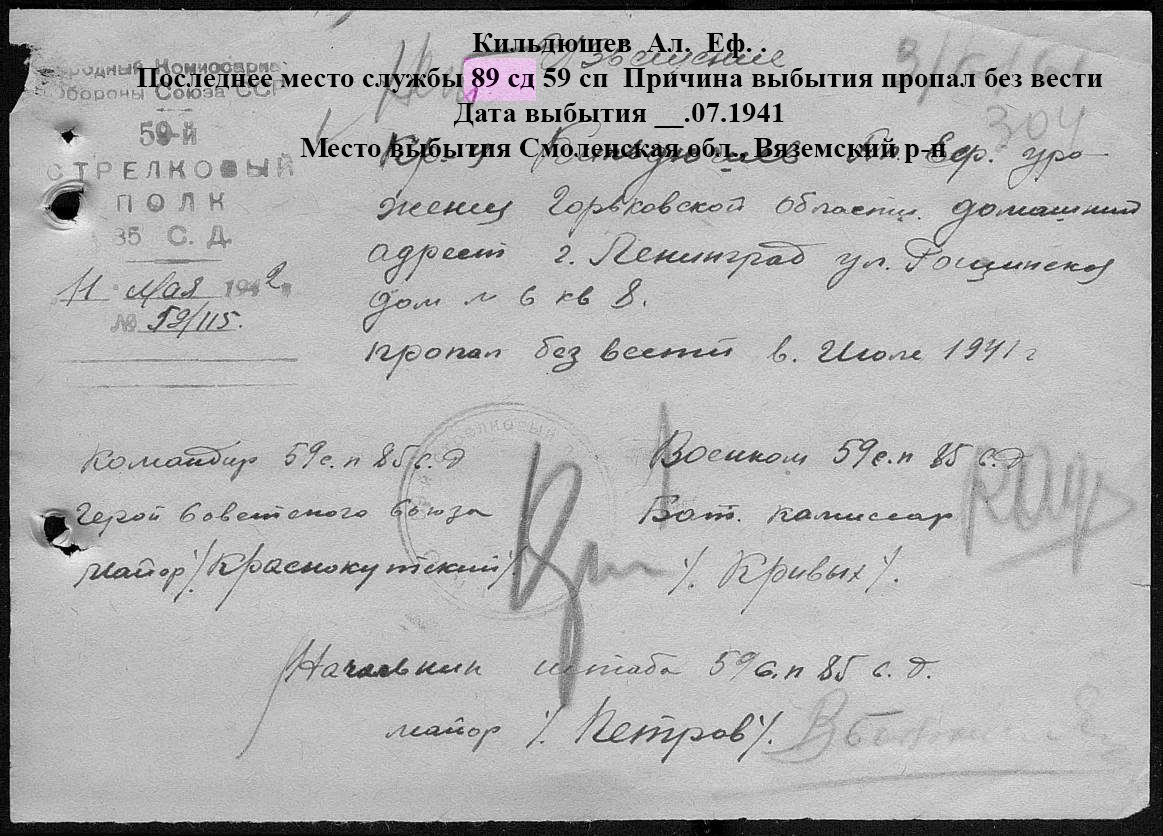 Кильдюшев Ал. Еф. .
Последнее место службы 89 сд 59 сп Причина выбытия пропал без вести
Дата выбытия __.07.1941
Место выбытия Смоленская обл., Вяземский р-н
Народный Комиссариат
Обороны Союза ССР
59-й
СТРЕЛКОВЫЙ
ПОЛК
85 С. Д.
11 мая 1942
№ 59/115.
304
Еф. уро-
женец Горьковской области. домашний
адрест г. Ленинград ул. Рощинская
дом № 6 кв 8.
пропал без вести в. Июле 1941 г
Командир 59 с.п 85 с. д
Герой Советского Союза
майор /Краснокутский/
Военком 59 с.п 85 с. д
Бат. камиссар
/. Кривых /.
Начальник штаба 59 с.п 85 с. д.
майор /. Петров /.